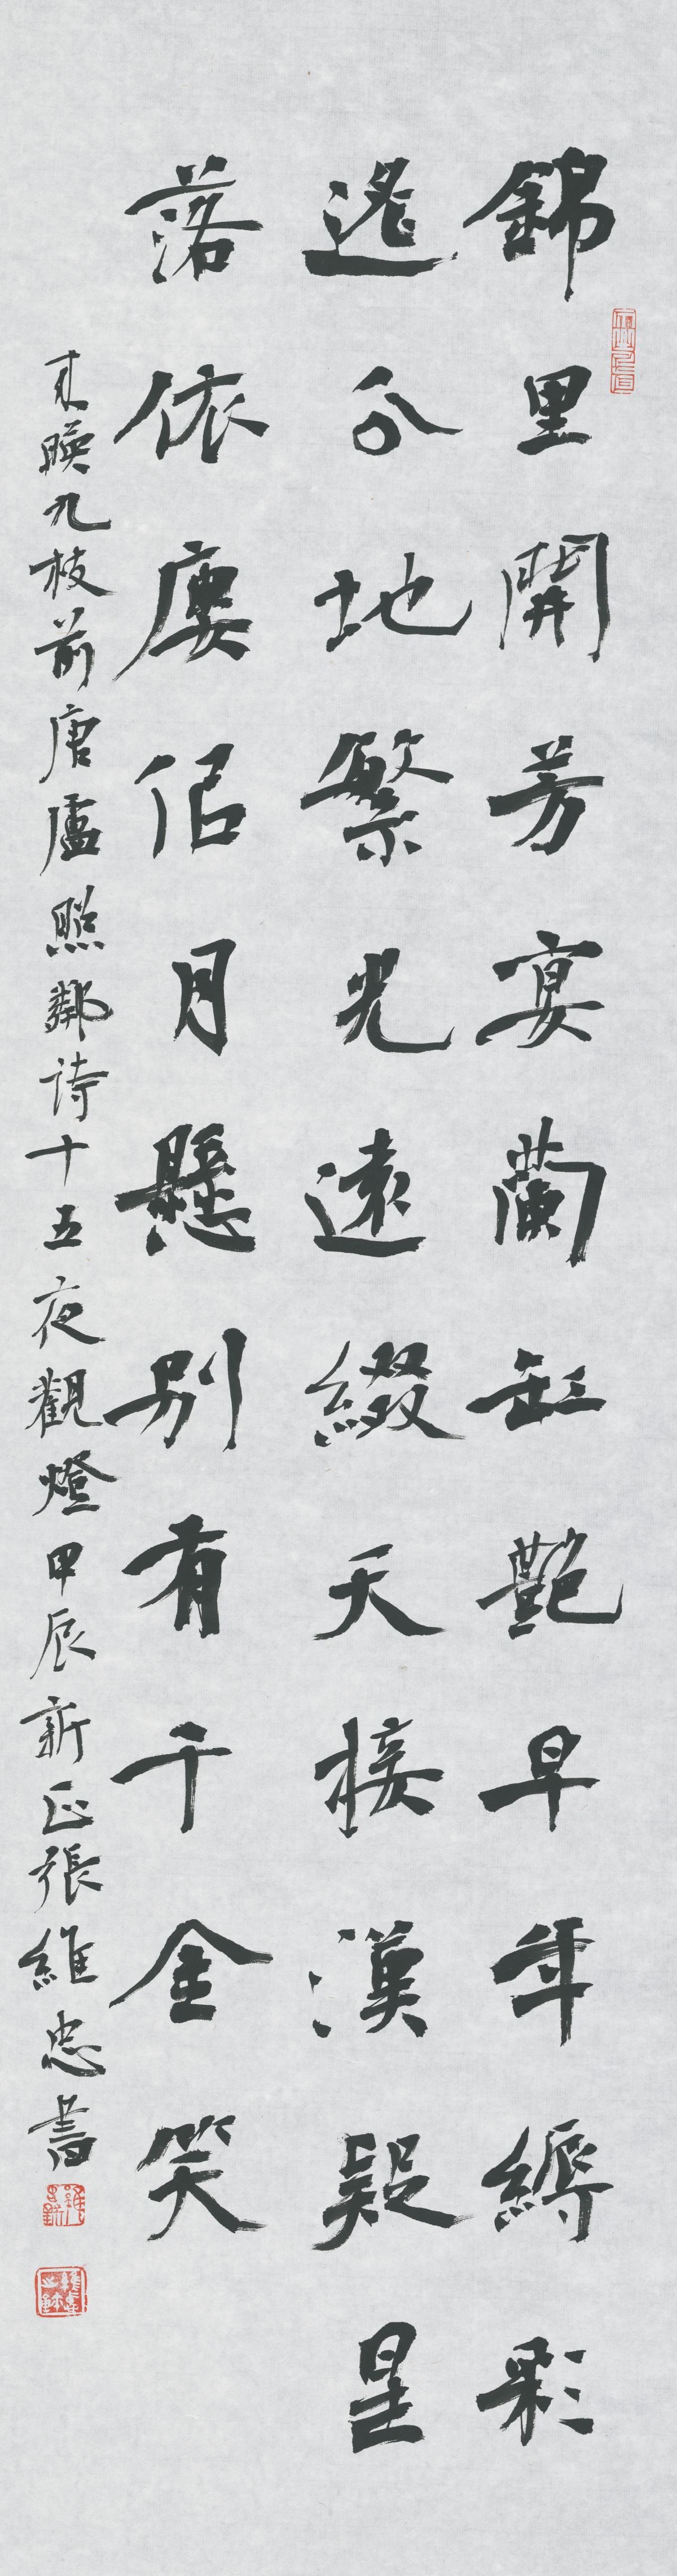 錦里開芳宴蘭缸艷早年縟彩
遙分地繁光遠綴天接漢疑星
落依廔佀月懸別有千金笑
来暎九枝前唐盧照鄰詩十五夜觀燈甲辰新正張維忠書